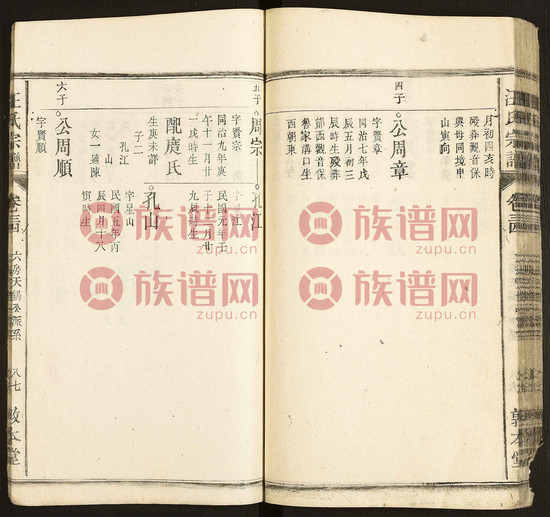 汪氏宗譜
卷三四
敦本堂
月初四亥時
歿葬觀音保
與母同境申
山寅向
四子
公周章
字賢章
同治七年戊
辰五月初三
辰時生歿葬
節西觀音保
魯家溝口生
西朝東
五子
周宗
字賢宗
同治九年庚
午十一月廿
一戌時生
配庹氏
生庚未詳
子二
孔江
山
女一適陳
孔江
字江
民國元年壬
子十一月廿
九時生
孔山
字星山
民國五年丙
辰四月十八
寅時生
六子
公周順
字賢順
汪氏宗譜
卷三四
六房天錫公派系
八七
敦本堂
族谱网
zupu.cn
族谱网
zupu.cn
族谱网
zupu.cn
族谱网
zupu.cn